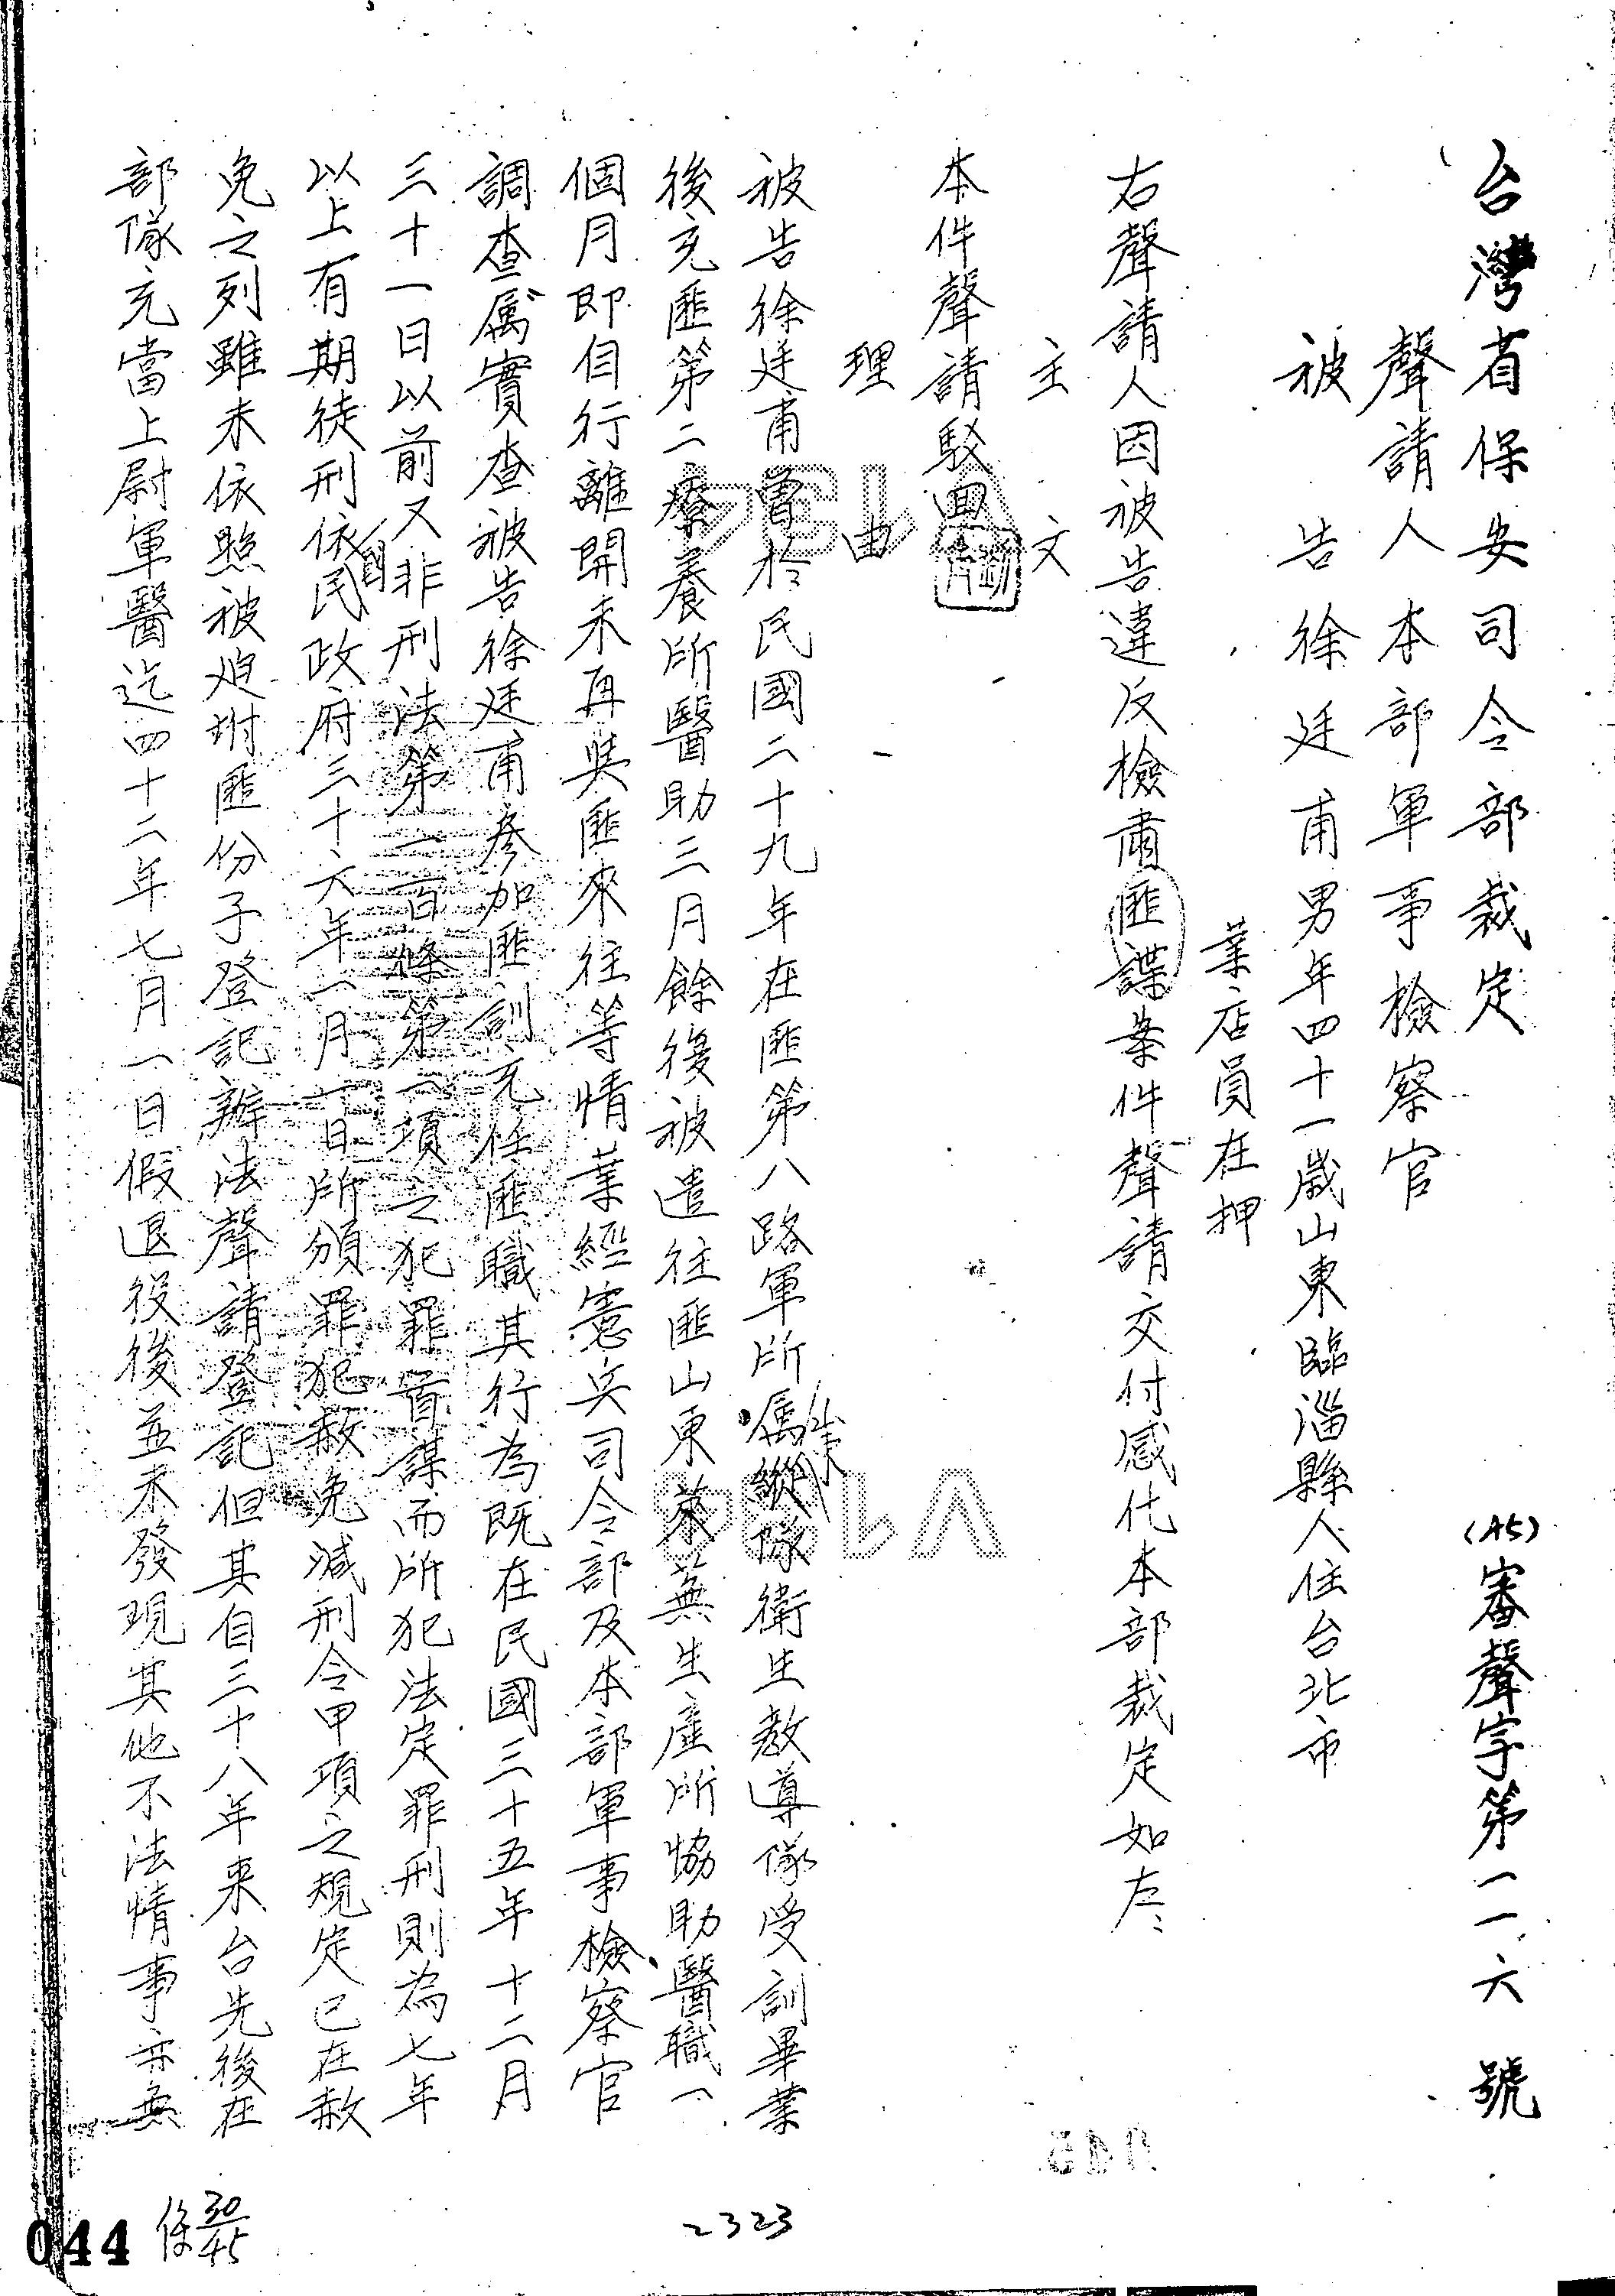 台灣省保安司令部裁定 (45)審聲字第一一六號
聲請人本部軍事檢察官
被告徐廷甫男年四十一歲山東臨淄縣人住台北市
業店員在押
右聲請人因被告違反檢肅匪諜案件聲請交付感化本部裁定如左
主文
本件聲請駁回
理由
被告徐廷甫曾於民國二十九年在匪第八路軍所属縱隊衛生教導隊受訓畢業
後充匪第二療養所醫助三月餘後被遣往匪山東萊蕪生產所協助醫職一
個月即自行離開未再與匪來往等情業經憲兵司令部及本部軍事檢察官
調查属實查被告徐廷甫參加匪訓充任匪職其行為既在民國三十五年十二月
三十一日以前又非刑法第一百條第一項之犯罪首謀而所犯法定罪刑則為七年
以上有期徒刑依國民政府三十六年一月一日所頒罪犯赦免減刑令甲項之規定已在赦
免之列雖未依照被迫附匪份子登記辦法聲請登記但其自三十八年來台先後在
部隊充當上尉軍醫迄四十二年七月一日假退役後並未發現其他不法情事亦無
2323
044
30
45